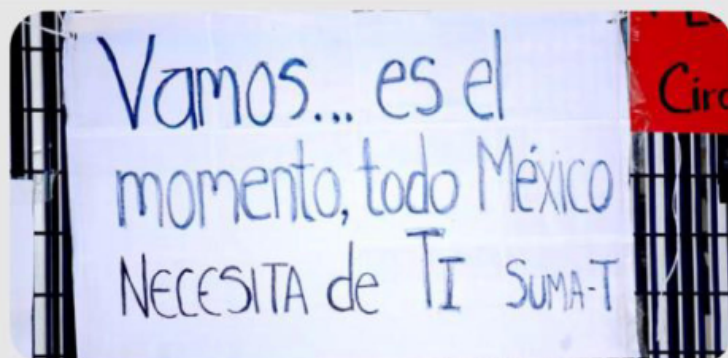 Vamos... es el
momento, todo México
NECESITA de TI SUMA-T